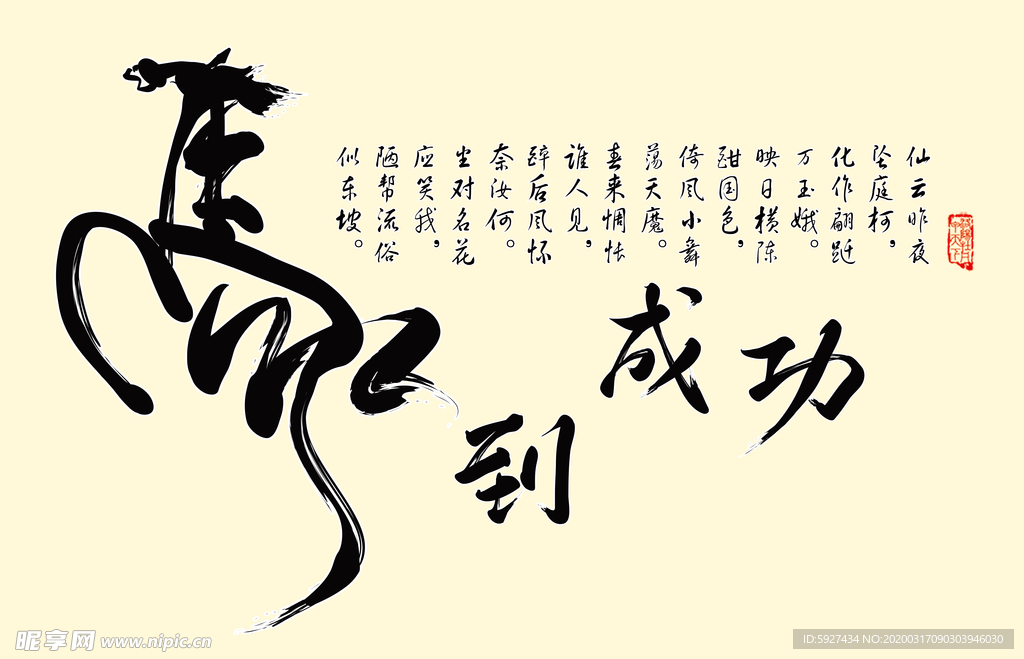 馬到成功
仙云昨夜
坠庭柯，
化作翩跹
万玉娥。
映日横陈
酣国色，
倚风小舞
荡天魔。
春来惆怅
谁人见，
醉后风怀
奈汝何。
坐对名花
应笑我，
陋帮流俗
似东坡。
昵享网 www.nipic.cn
ID:5927434 NO:20200317090303946030